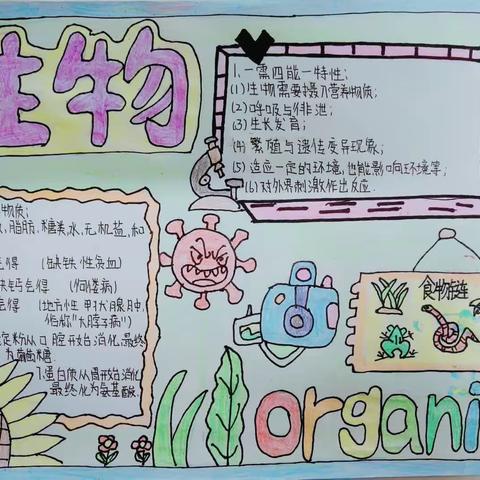 生物
1、一需四能一特性;
(1)生物需要摄入营养物质;
(2)呼吸与排泄;
(3)生长发育;
(4)繁殖与遗传变异现象;
(5)适应一定的环境,也能影响环境等;
(6)对外界刺激作出反应.
物质;
脂肪、糖类、水、无机盐、和
乏得 (缺铁性贫血)
缺钙乏得 (佝偻病)
乏得 (地方性甲状腺肿,
俗称"大脖子病")
淀粉从口腔开始消化,最终
为葡萄糖.
7.蛋白质从胃开始消化
最终化为氨基酸.
食物链
organi